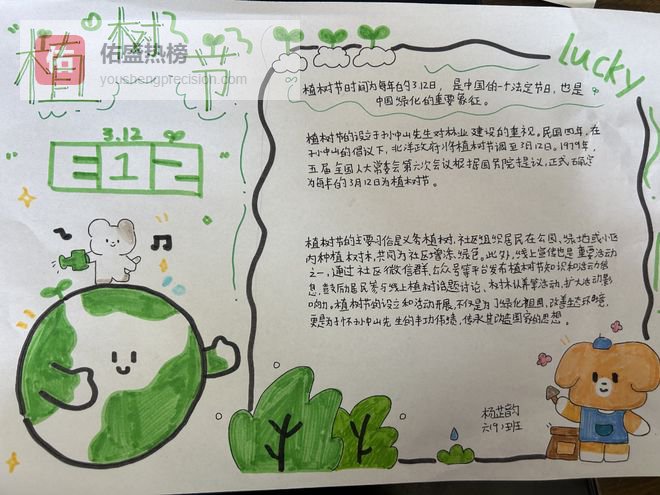 植树节
佑盛热榜
youshengprecision.com
lucky
3.12
三 1 二
植树节时间为每年的3.12日，是中国的一个法定节日，也是
中国绿化的重要象征。
植树节的设立于孙中山先生对林业建设的重视。民国四年，在
孙中山的倡议下，北洋政府将植树节调至3月12日。1979年，
五届全国人大常委会第六次会议根据国务院提议，正式确定
为每年的3月12日为植树节。
植树节的主要习俗是义务植树，社区组织居民在公园、绿地或小区
内种植树木，共同为社区增添绿色。此外，线上宣传也是重要活动
之一，通过社区微信群、公众号等平台发布植树节知识和活动信
息，鼓励居民参与线上植树话题讨论、树木认养等活动，扩大活动影
响力。植树节的设立和活动开展，不仅是为了绿化祖国，改善生态环境，
更是为了怀孙中山先生的丰功伟绩，传承其改造国家的思想。
杨芷韵
六(9)班